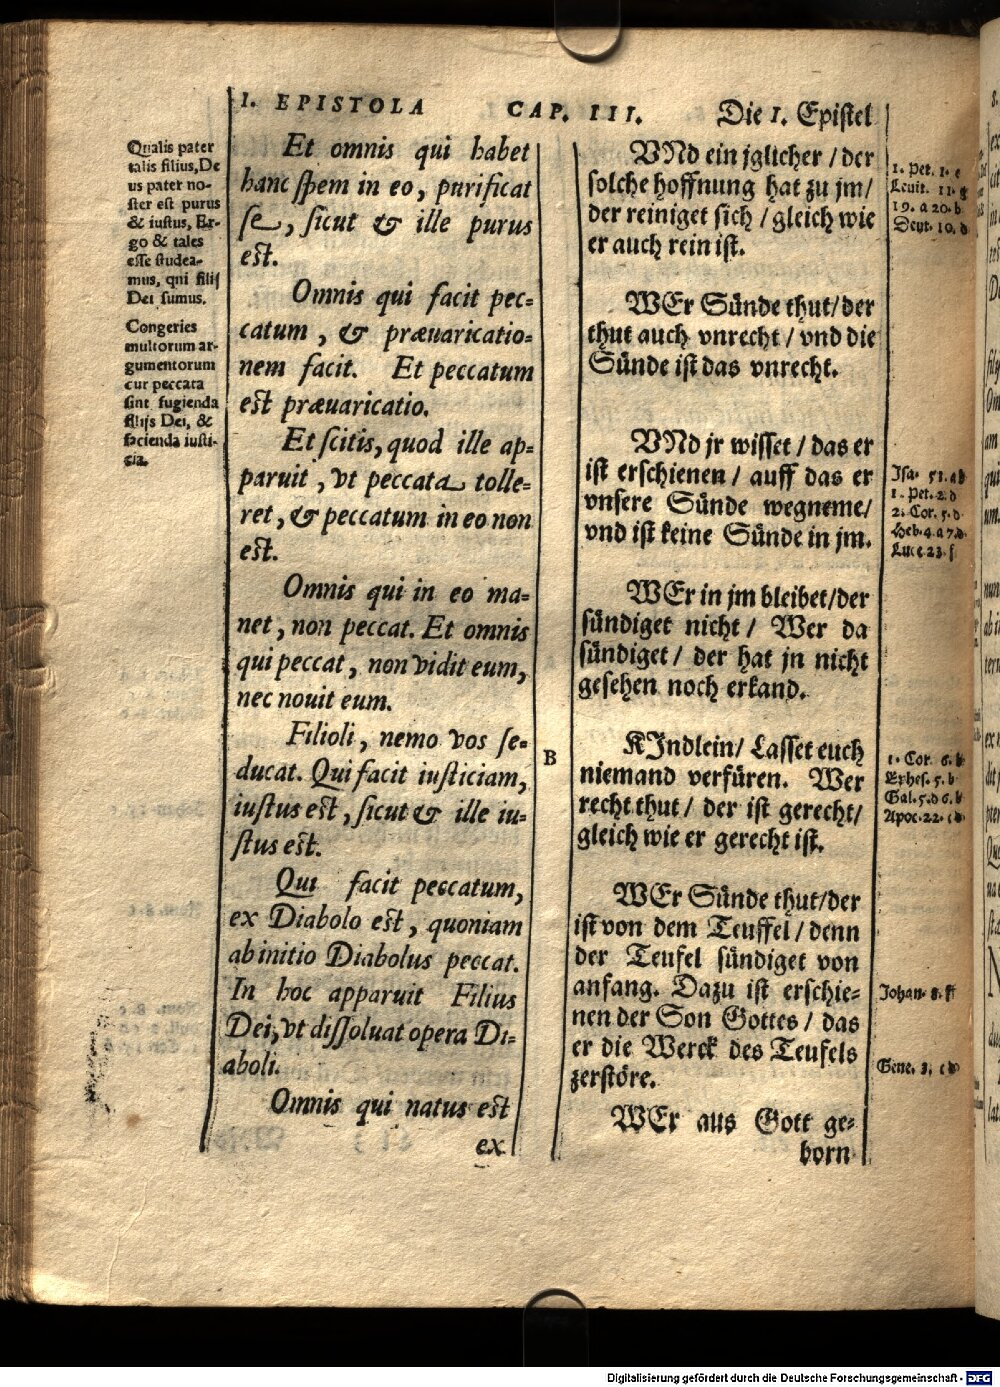 I. EPISTOLA CAP. III. Die I. Epistel
Qualis pater
talis filius, De
us pater no-
ster est purus
& iustus, Er-
go & tales
esse studea-
mus, qui filij
Dei sumus.
Congeries
multorum ar-
gumentorum
cur peccata
sint fugienda
filijs Dei, &
facienda iusti-
cia.
Et omnis qui habet
hanc spem in eo, purificat
se, sicut & ille purus
est.
Omnis qui facit pec-
catum, & præuaricatio-
nem facit. Et peccatum
est præuaricatio.
Et scitis, quod ille ap-
paruit, vt peccata tolle-
ret, & peccatum in eo non
est.
Omnis qui in eo ma-
net, non peccat. Et omnis
qui peccat, non vidit eum,
nec nouit eum.
Filioli, nemo vos se-
ducat. Qui facit iusticiam,
iustus est, sicut & ille iu-
stus est.
Qui facit peccatum,
ex Diabolo est, quoniam
ab initio Diabolus peccat.
In hoc apparuit Filius
Dei, vt dissoluat opera Di-
aboli.
Omnis qui natus est
ex
B
VNd ein jglicher / der
solche hoffnung hat zu jm /
der reiniget sich / gleich wie
er auch rein ist.
WEr Sünde thut / der
thut auch vnrecht / vnd die
Sünde ist das vnrecht.
VNd jr wisset / das er
ist erschienen / auff das er
vnsere Sünde wegneme /
vnd ist keine Sünde in jm.
WEr in jm bleibet / der
sündiget nicht / Wer da
sündiget / der hat jn nicht
gesehen noch erkand.
KJndlein / Lasset euch
niemand verfüren. Wer
recht thut / der ist gerecht /
gleich wie er gerecht ist.
WEr Sünde thut / der
ist von dem Teuffel / denn
der Teufel sündiget von
anfang. Dazu ist erschie-
nen der Son Gottes / das
er die Werck des Teufels
zerstöre.
WEr aus Gott ge-
born
1. Pet. 1. c
Leuit. 11. g
19. a 20. b
Deut. 10. d
Isa. 51. a b
1. Pet. 2. d
2. Cor. 5. d
Heb. 4. a 7. d.
Luce 23. f
1. Cor. 6. b
Ephes. 5. b
Gal. 5. d 6. b
Apoc. 22. c d
Johan. 8. f
Gene. 3. c d
Digitalisierung gefördert durch die Deutsche Forschungsgemeinschaft - DFG